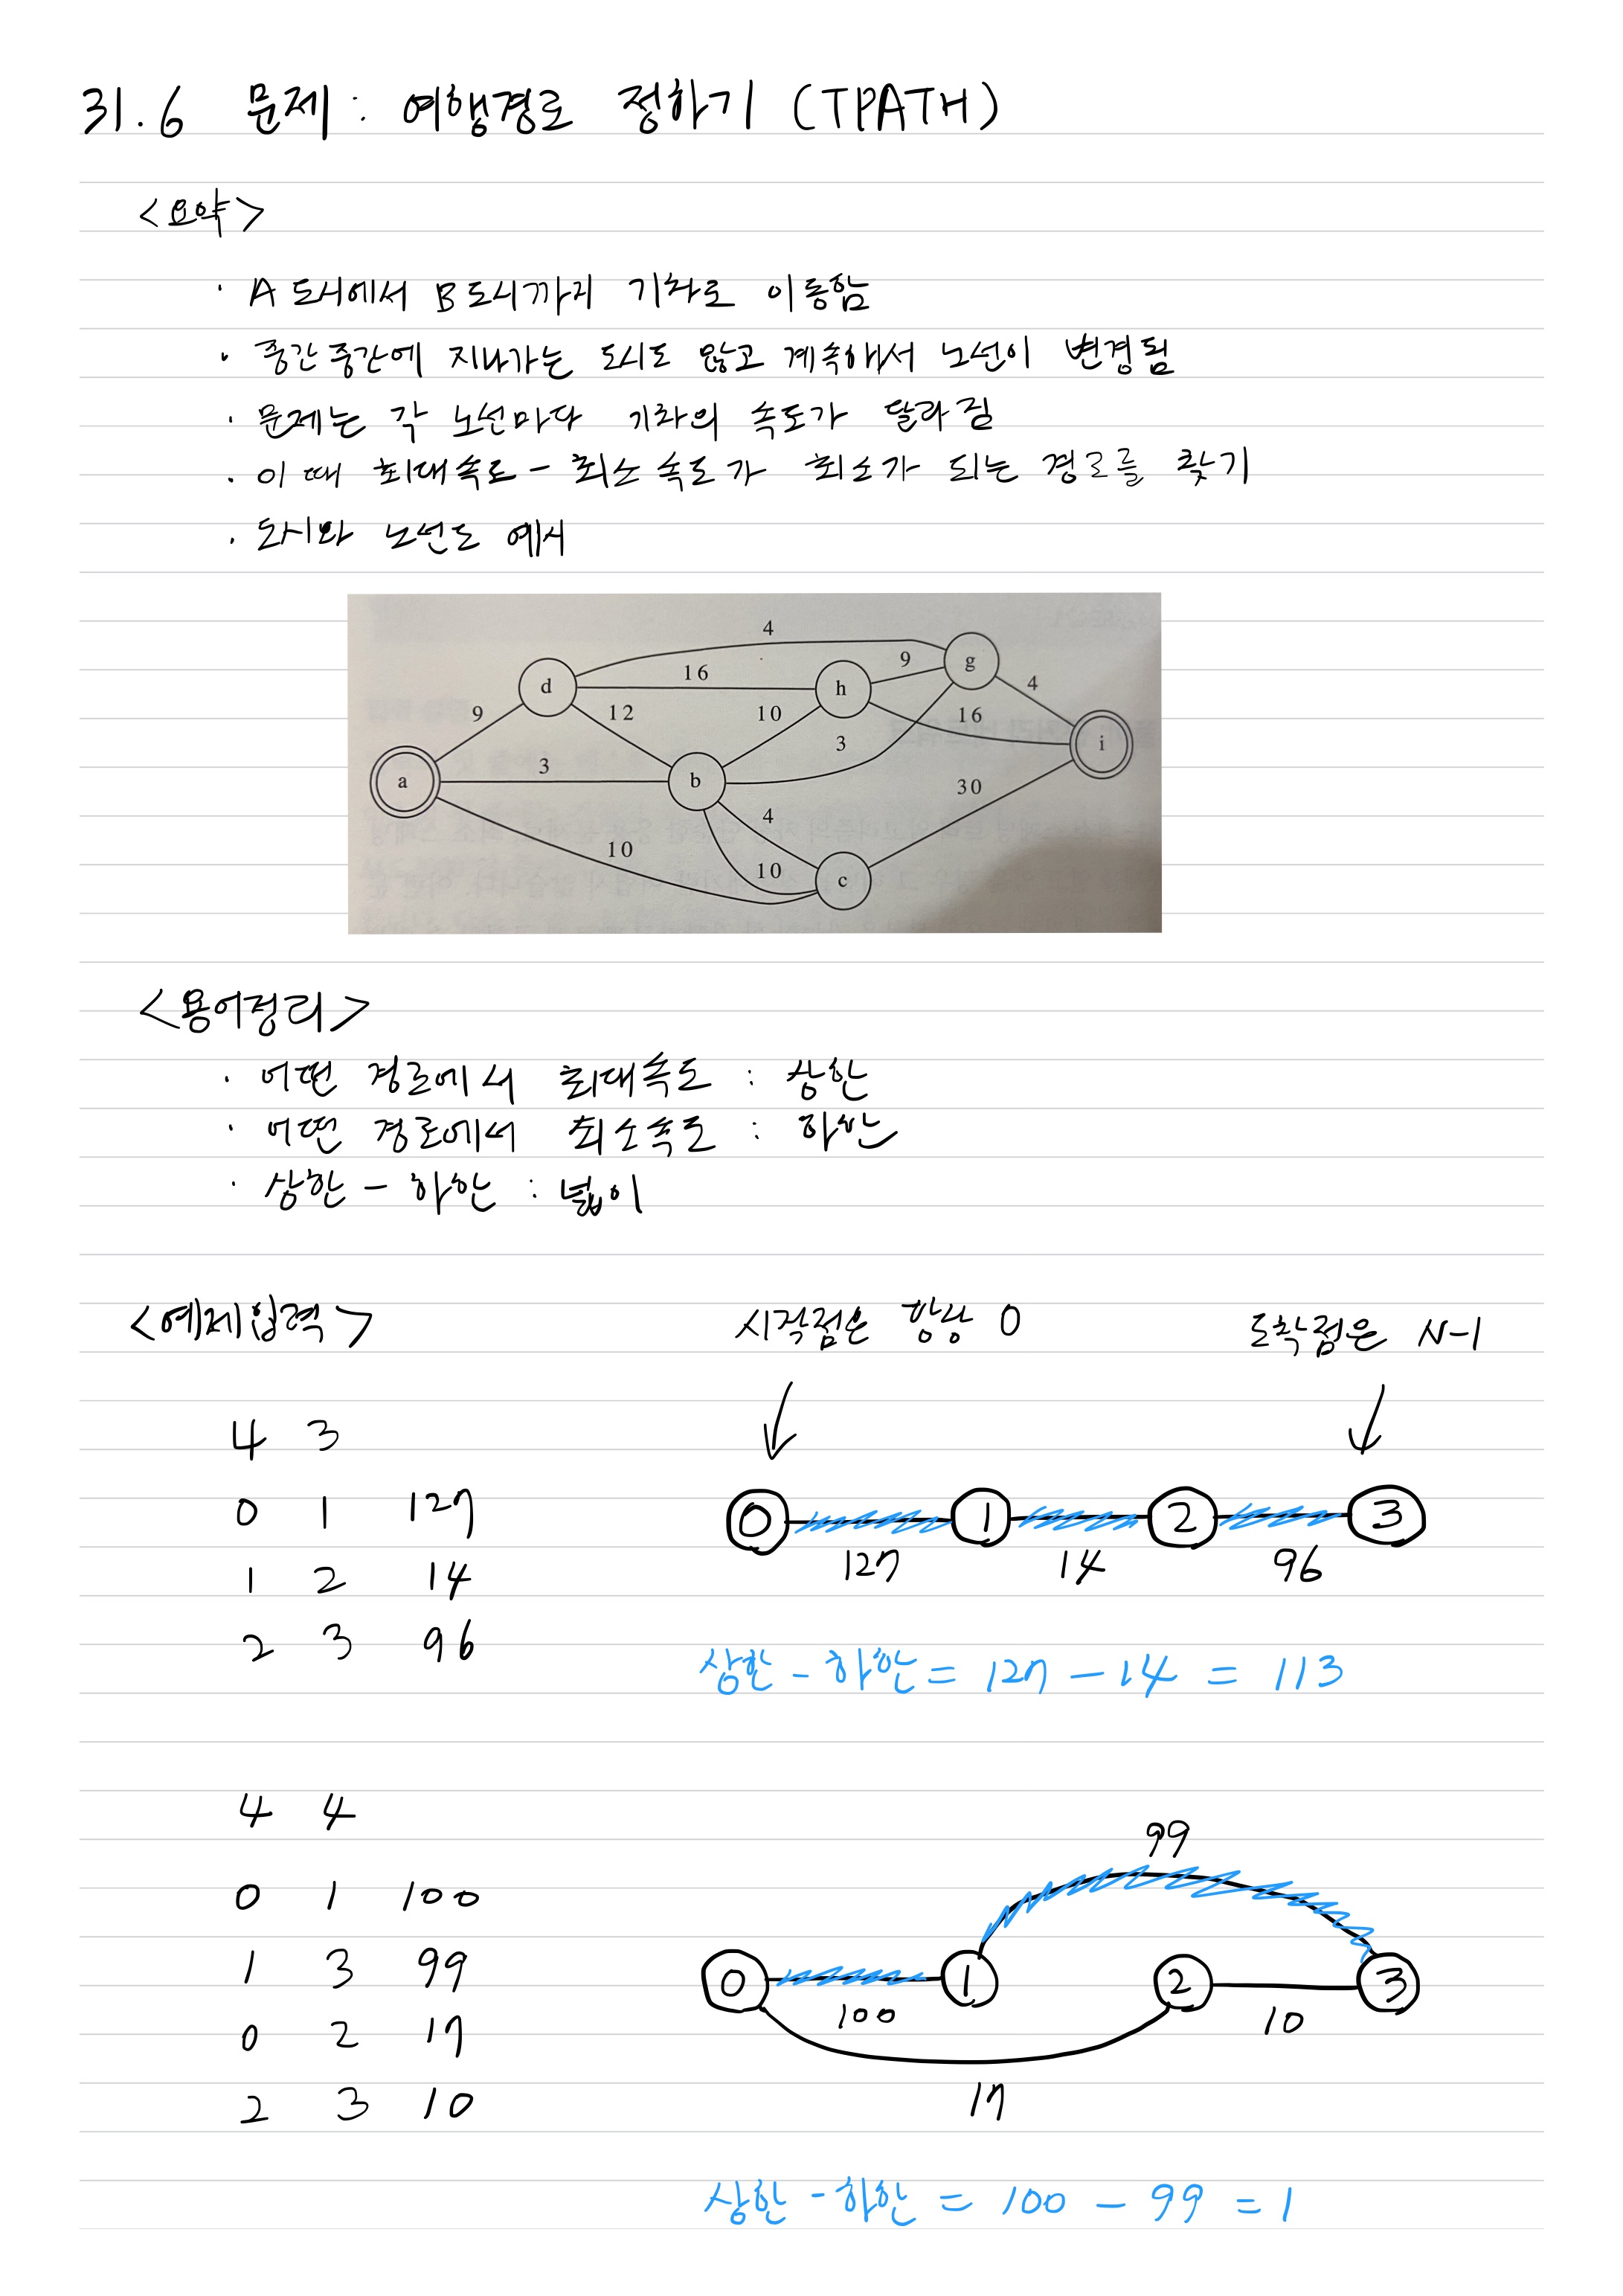 31.6 문제 : 여행경로 정하기 (TPATH)
<요약>
· A 도시에서 B 도시까지 기차로 이동함
· 중간중간에 지나가는 도시도 많고 계속해서 노선이 변경됨
· 문제는 각 노선마다 기차의 속도가 달라짐
· 이 때 최대속도 - 최소속도가 최소가 되는 경로를 찾기
· 도시와 노선도 예시
4
16
9
g
d
h
4
9
12
10
16
3
i
3
a
b
30
4
10
10
c
<용어정리>
· 어떤 경로에서 최대속도 : 상한
· 어떤 경로에서 최소속도 : 하한
· 상한 - 하한 : 넓이
<예제입력>
시작점은 항상 0
도착점은 N-1
4 3
0 1 127
1 2 14
2 3 96
0 1 2 3
127 14 96
상한 - 하한 = 127 - 14 = 113
4 4
0 1 100
1 3 99
0 2 17
2 3 10
99
0 1 2 3
100 10
17
상한 - 하한 = 100 - 99 = 1